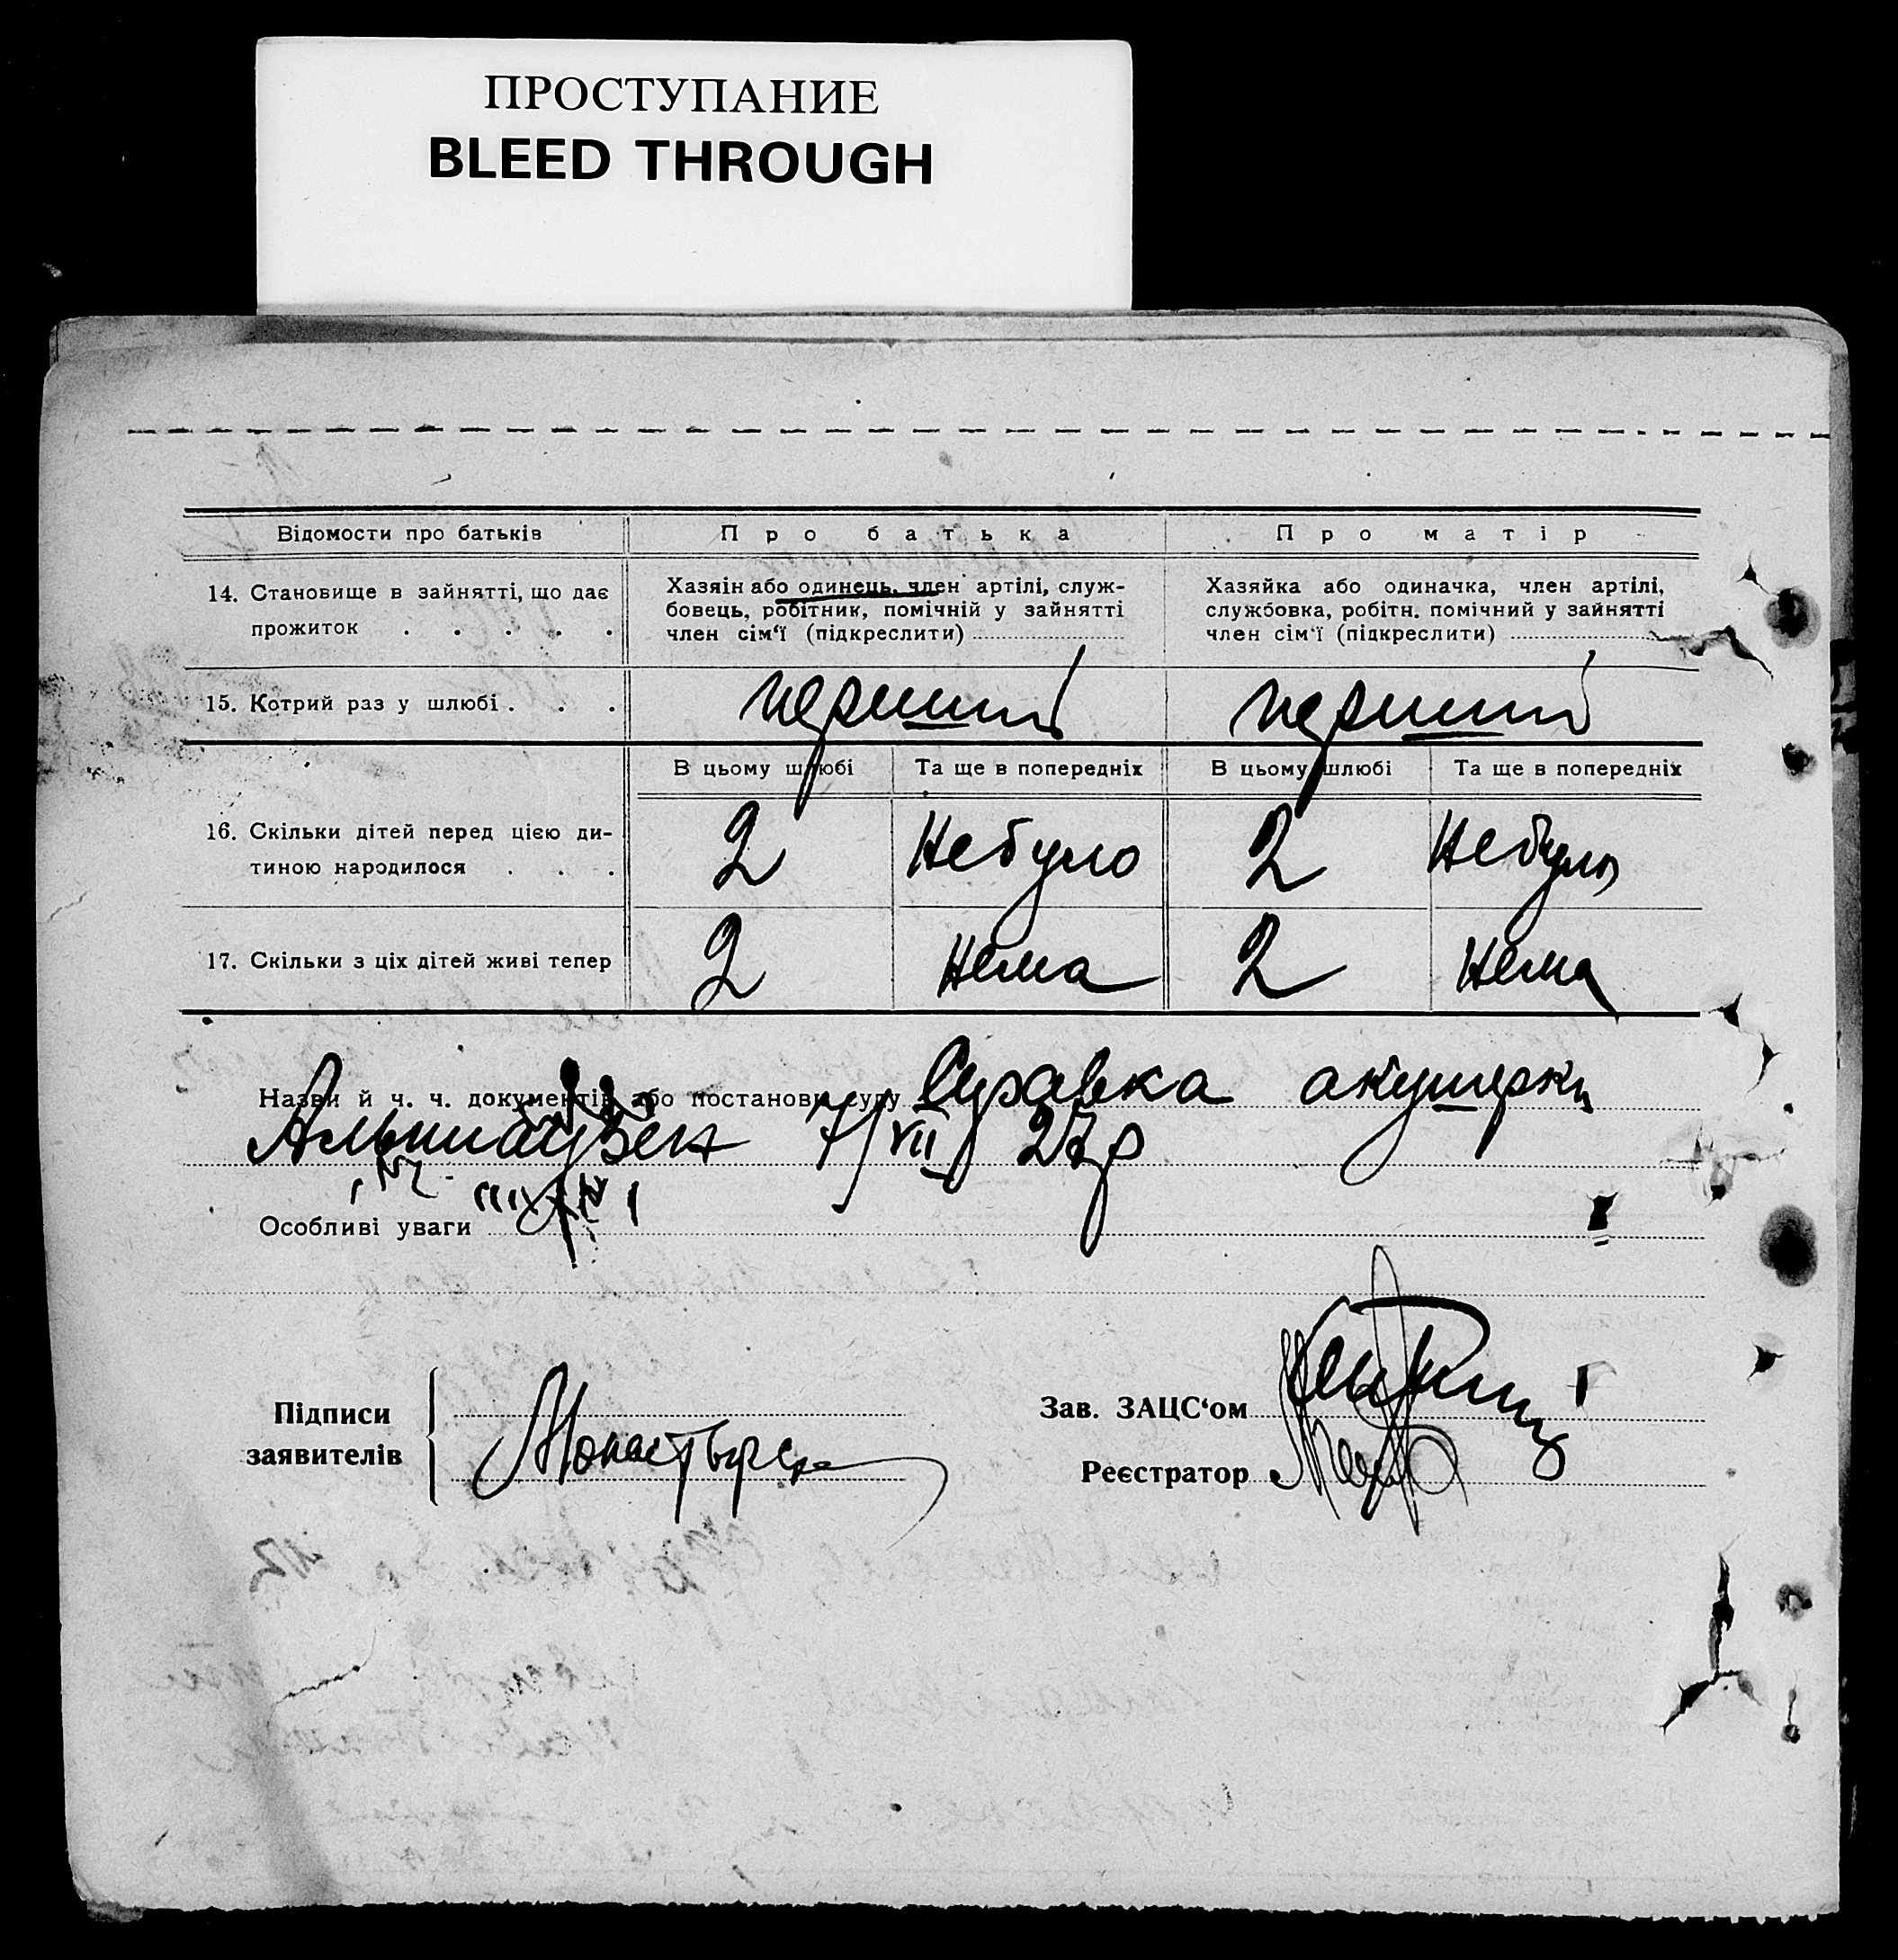 ПРОСТУПАНИЕ
BLEED THROUGH
Відомости про батьків
Про батька
Про матір
14. Становище в зайнятті, що дає
прожиток . . . . .
Хазяін або одинець, член артілі, служ-
бовець, робітник, помічній у зайнятті
член сім‘ї (підкреслити)
Хазяйка або одиначка, член артілі,
службовка, робітн. помічний у зайнятті
член сім‘ї (підкреслити)
15. Котрий раз у шлюбі . . .
перший
перший
В цьому шлюбі
Та ще в попередніх
В цьому шлюбі
Та ще в попередніх
16. Скільки дітей перед цією ди-
тиною народилося . . .
2
Небуло
2
Небуло
17. Скільки з ціх дітей живі тепер
2
Нема
2
Нема
Назви й ч. ч. документів або постанови суду Справка акушерки
7/VII 27р
Особливі уваги
Підписи
заявителів
Зав. ЗАЦС‘ом
Реєстратор